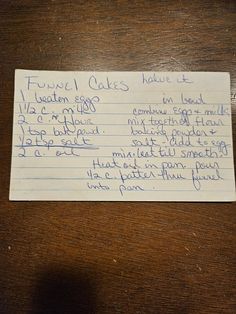 Funnel Cakes halve it
1 beaten eggs in bowl
1 1/2 c. milk combine eggs & milk
2 c. flour mix together flour
1 tsp bak. powd. baking powder &
1/2 tsp salt salt - add to egg
2 c. oil mix, beat till smooth.
Heat oil in pan. pour
1/2 c. batter thru funnel
into pan.